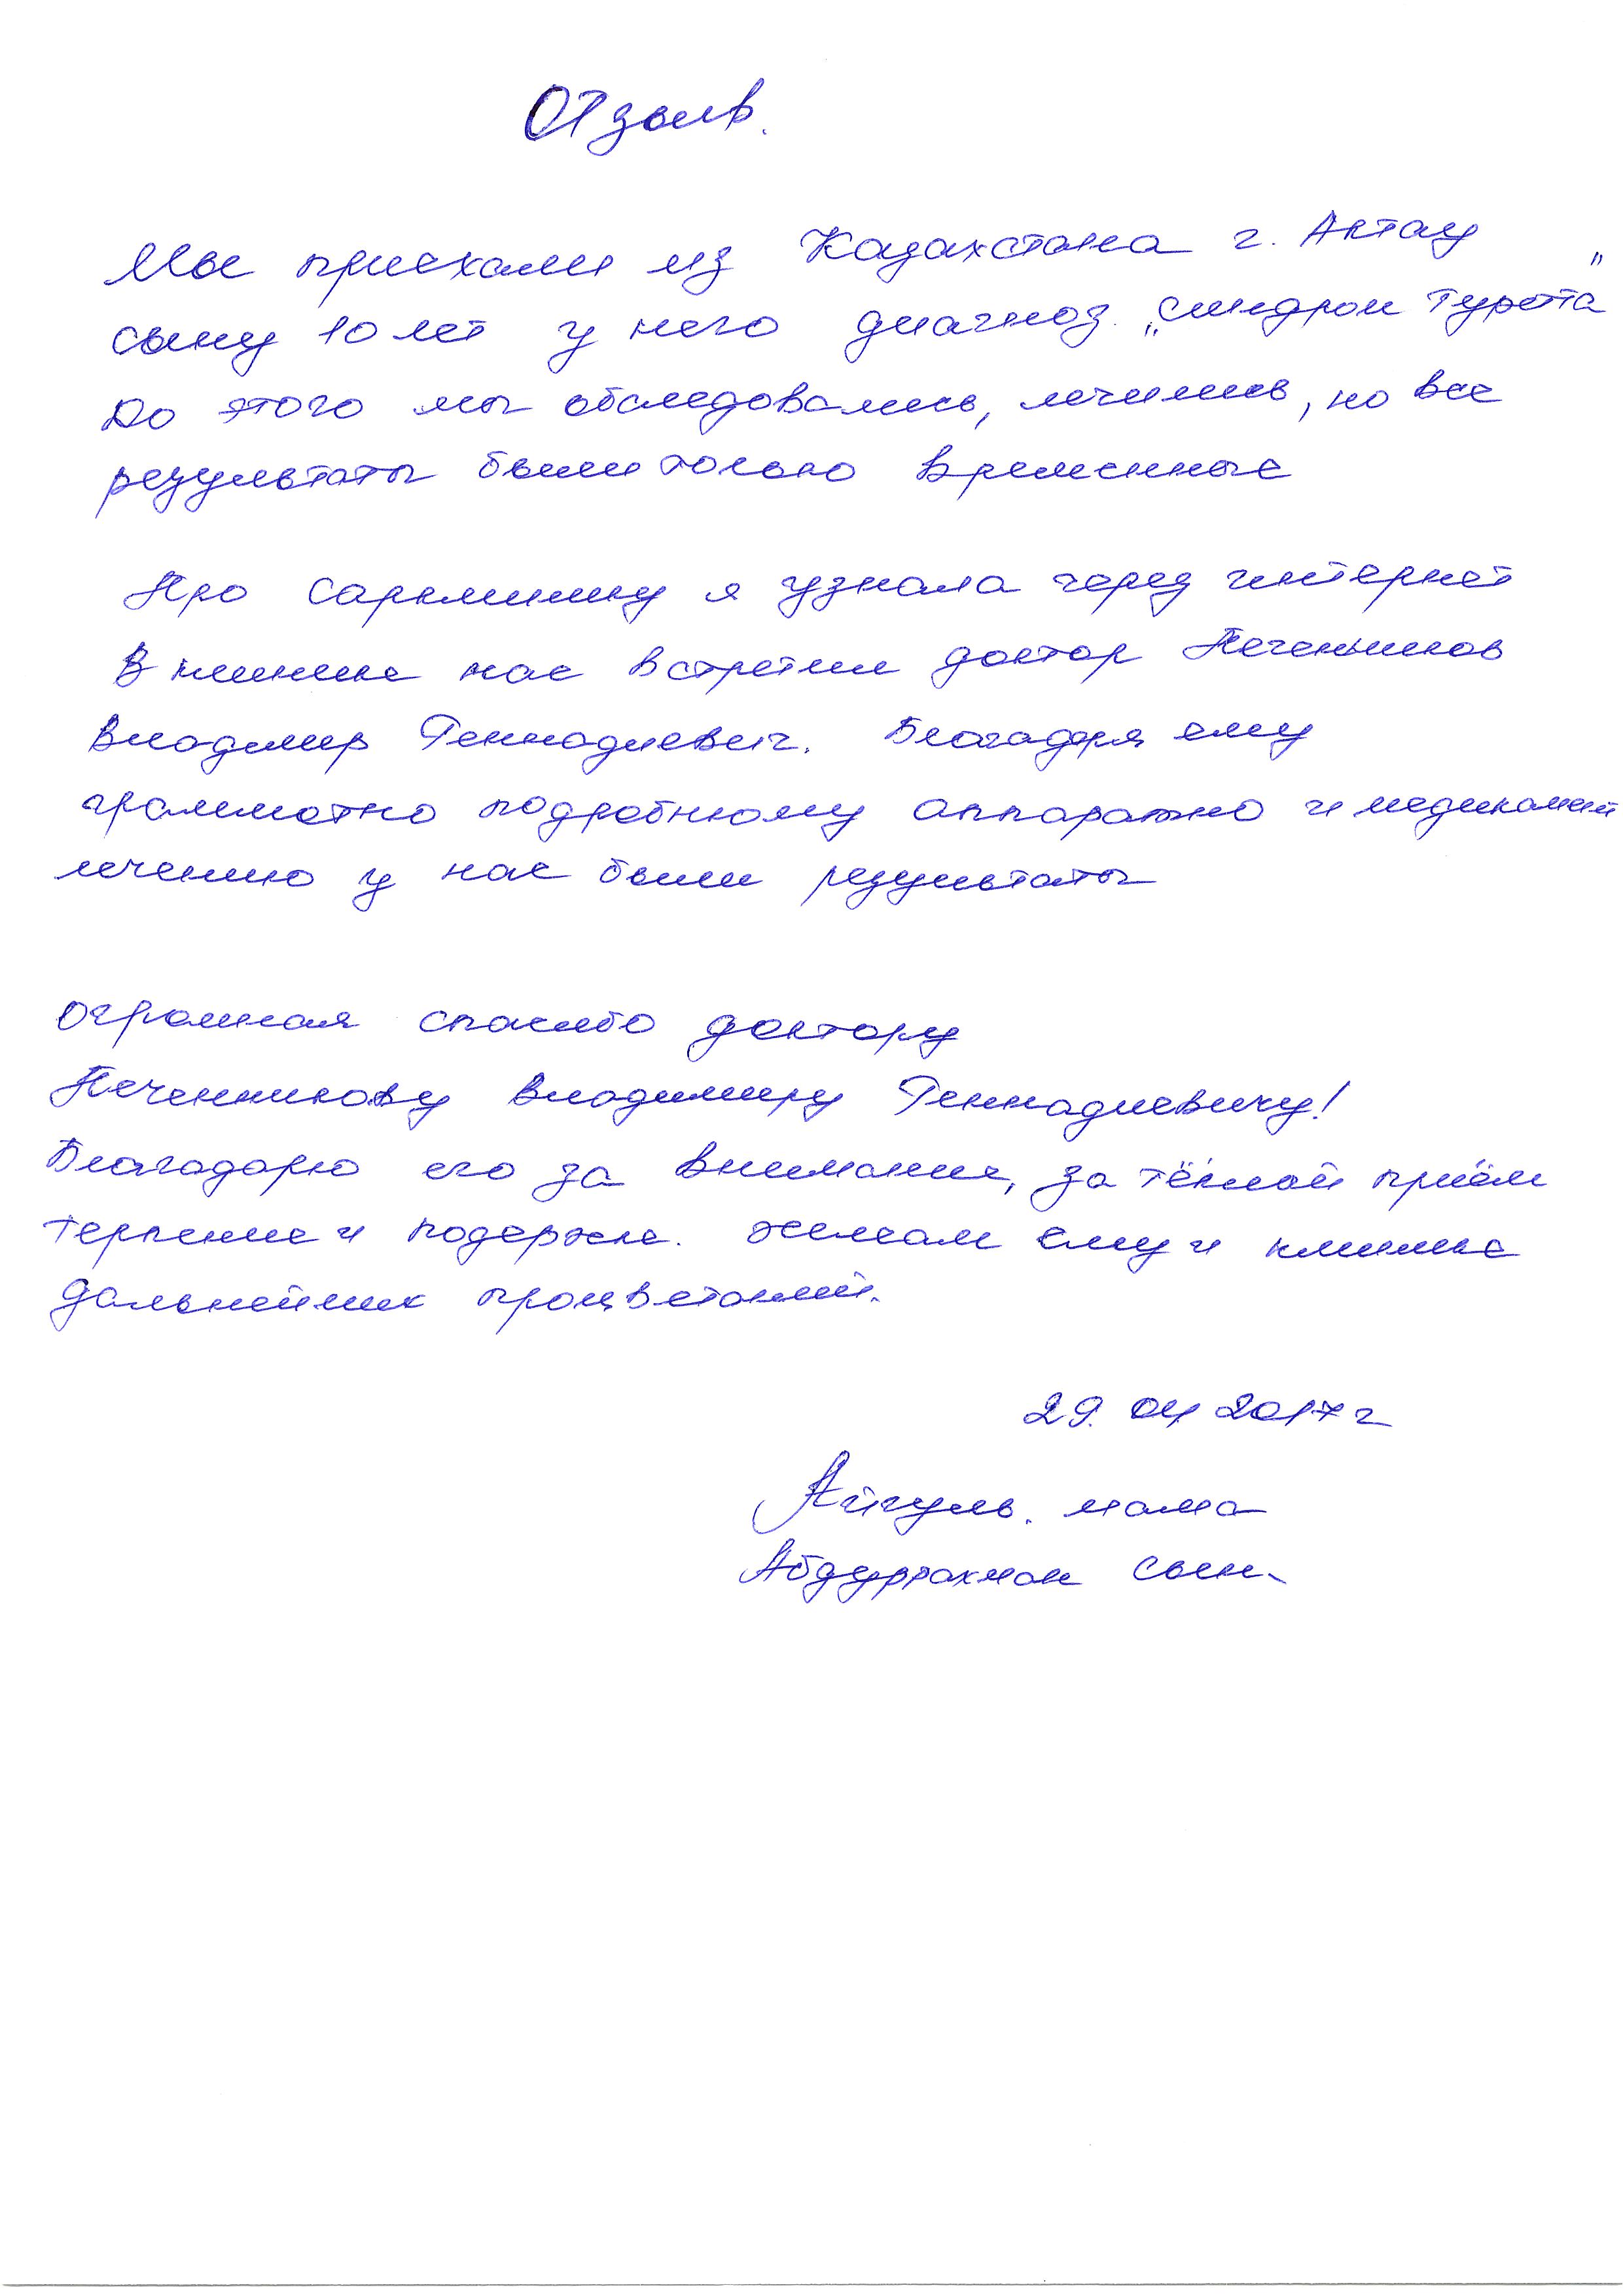 Отзыв.
Мы приехали из Казахстана г. Актау
сыну 10 лет у него диагноз. „синдром Туретта"
До этого мы обследовались, лечились, но все
результаты были только временные
Про Сарклинику я узнала через интернет
В клинике нас встретил доктор
Владимир Геннадиевич. Благодоря ему
граммотно подробному аппаратно и медикамент
лечению у нас были результаты
огромная спасибо доктору
Владимиру Геннадиевичу!
Благодарю его за внимание, за тёплой приём
терпение и подержке. желаем ему и клинике
дальнейших процветаний.
29. 04 2017 г
Айгуль. мама
Абдуррахман сын.